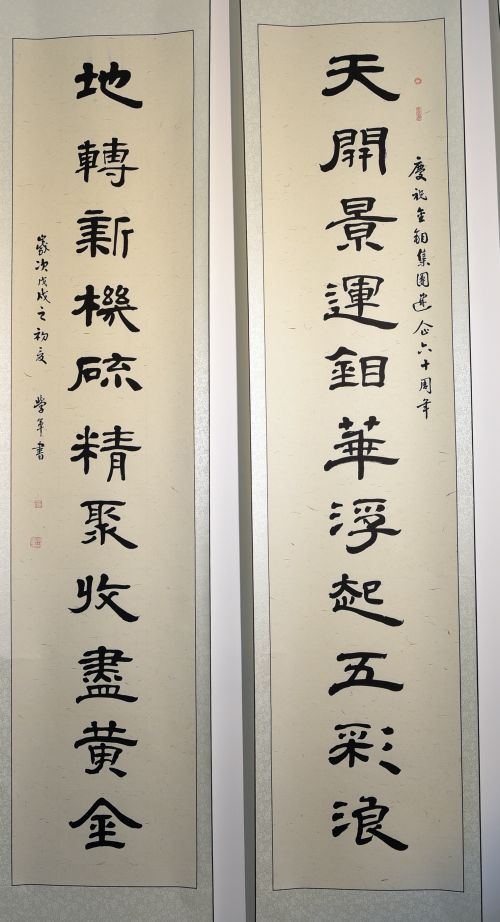 慶祝金鉬集團建企六十周年
天開景運鉬華浮起五彩浪
地轉新機硫精聚收盡黄金
歲次戊戌之初夏 學軍書